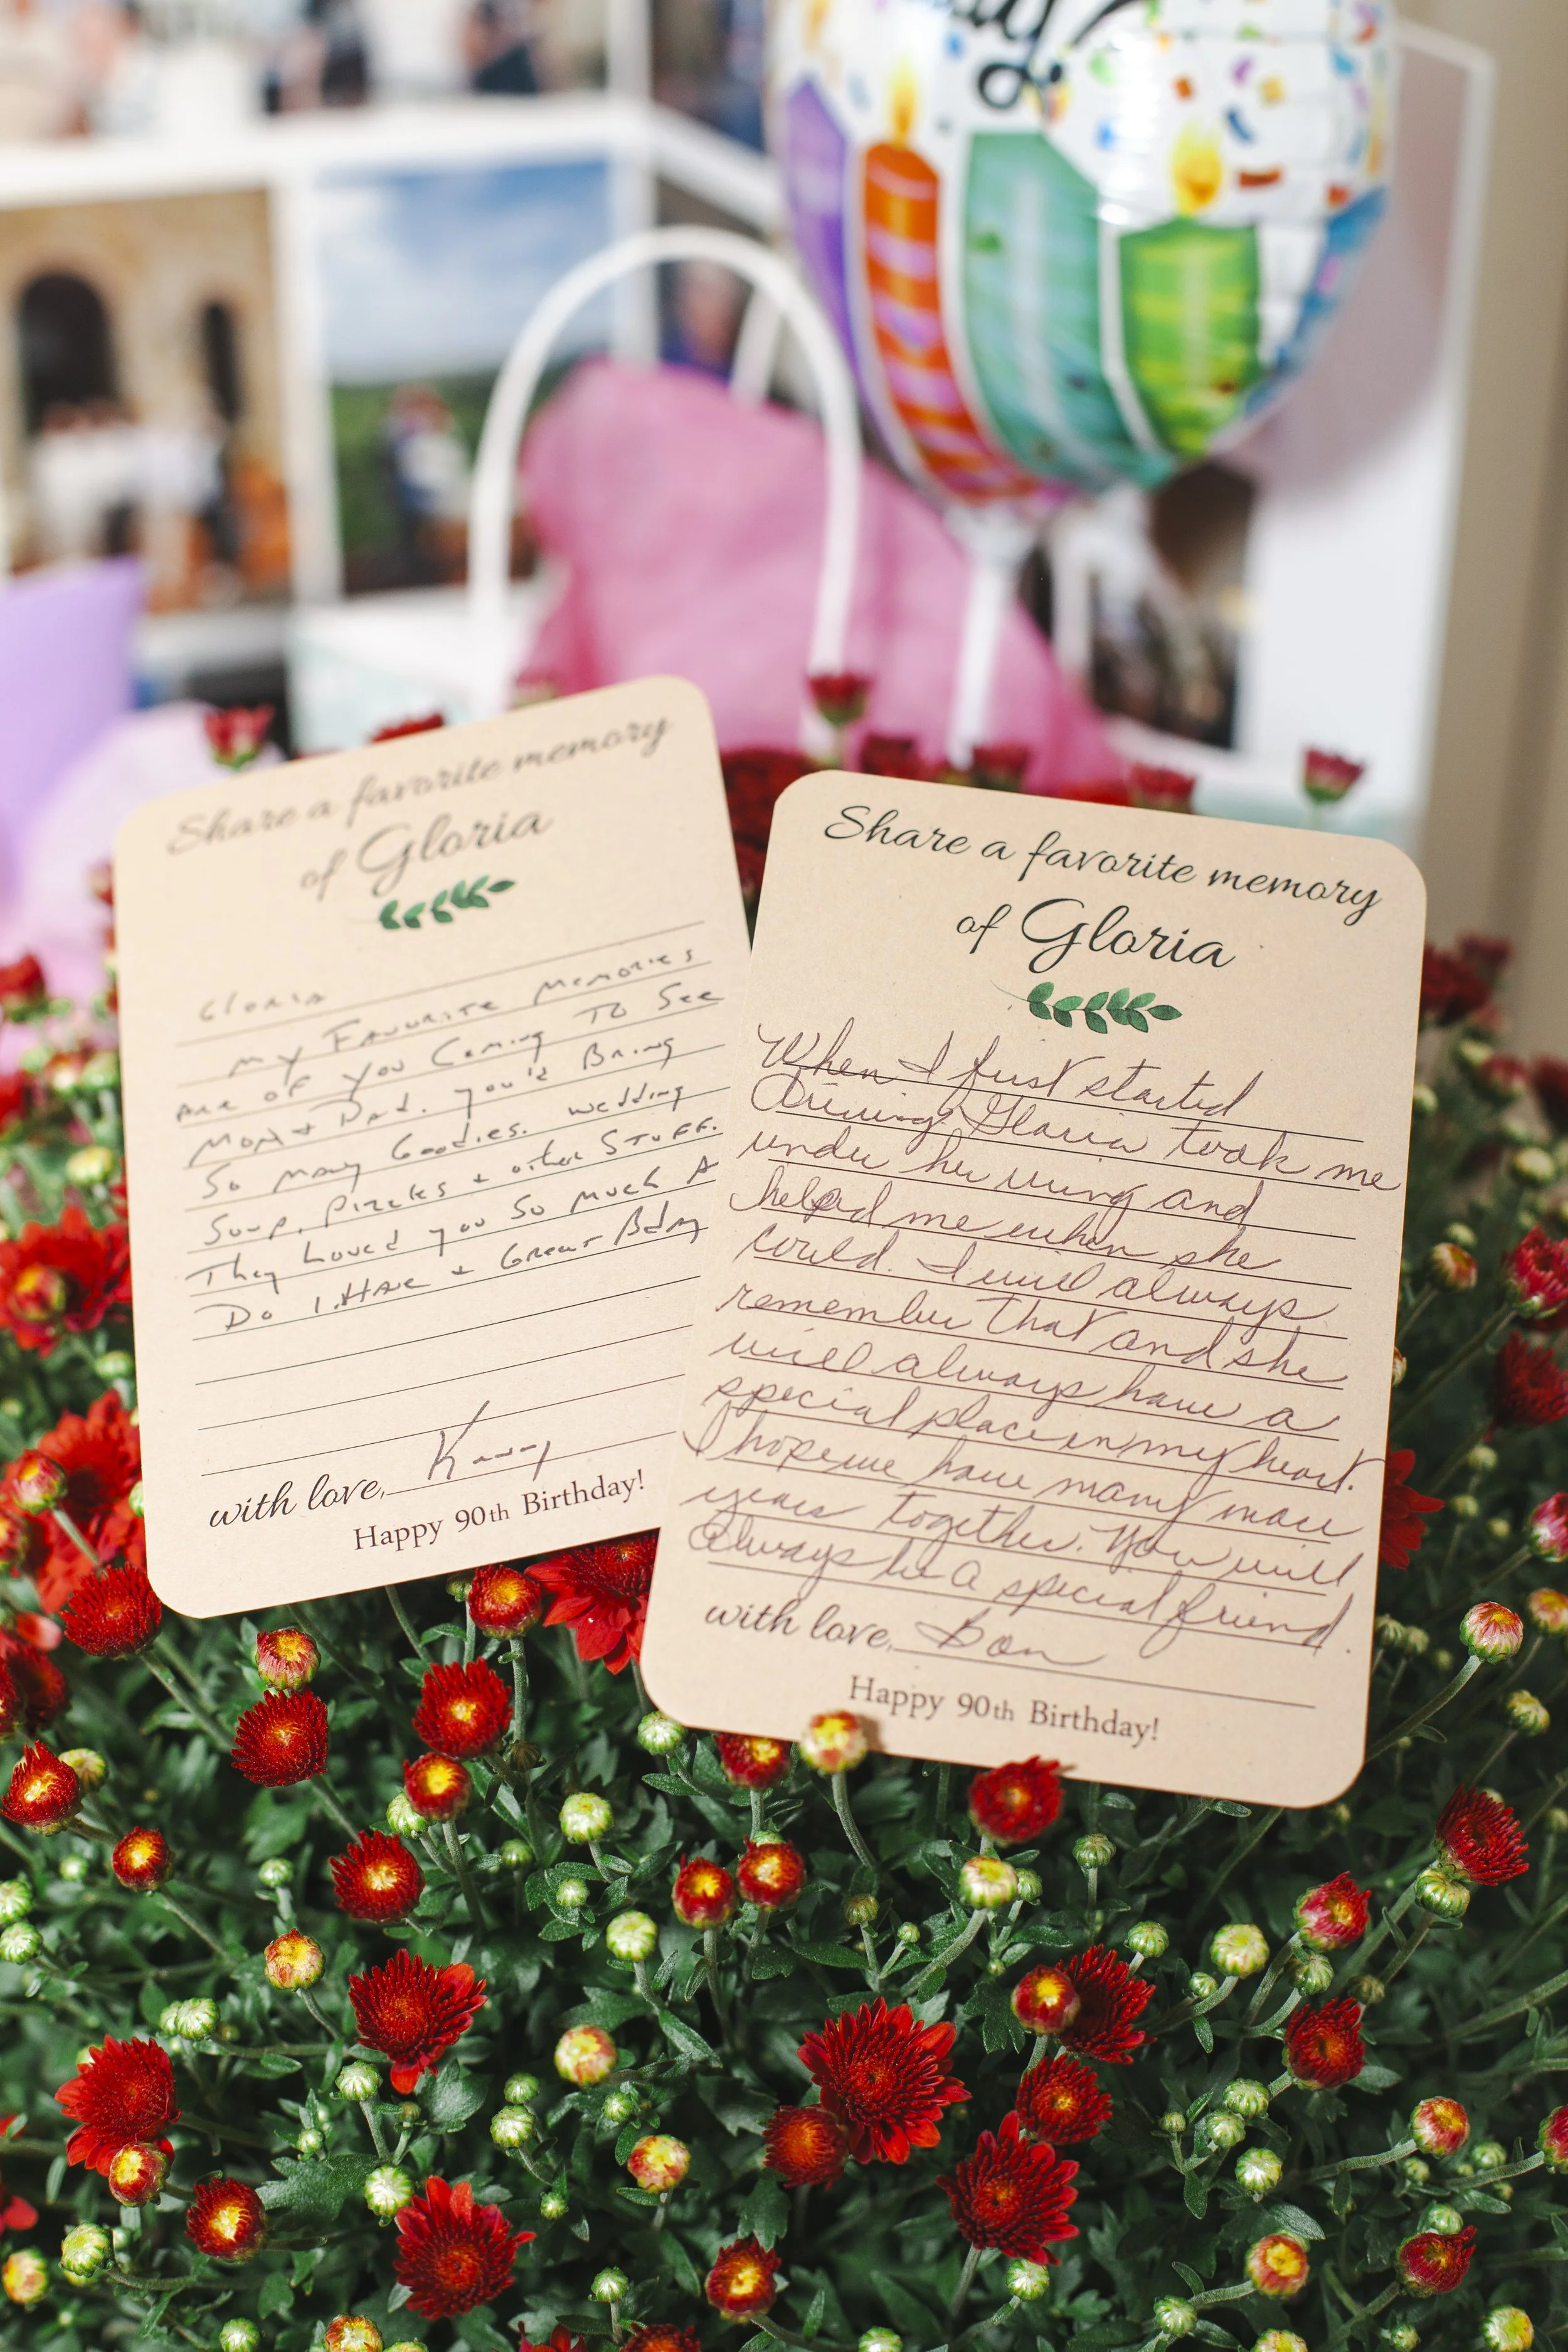 Share a favorite memory
of Gloria
Gloria
my Favorite Memories
are of you Coming To See
Mom + Dad. you'd Bring
So many Goodies. wedding
Soup, Pizzeles + other Stuff.
They Loved you So much A
Do I. Have a Great Bday
with love,
Happy 90th Birthday!
Share a favorite memory
of Gloria
When I first started
Driving Gloria took me
under her wing and
helped me when she
could. I will always
remember that and she
will always have a
special place in my heart.
I hope we have many more
years together. You will
always be a special friend.
with love,
Happy 90th Birthday!